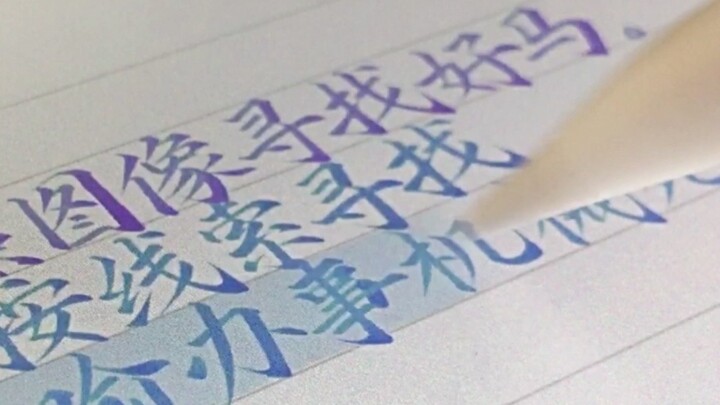 图像寻找好马。
按线索寻找
喻办事机械